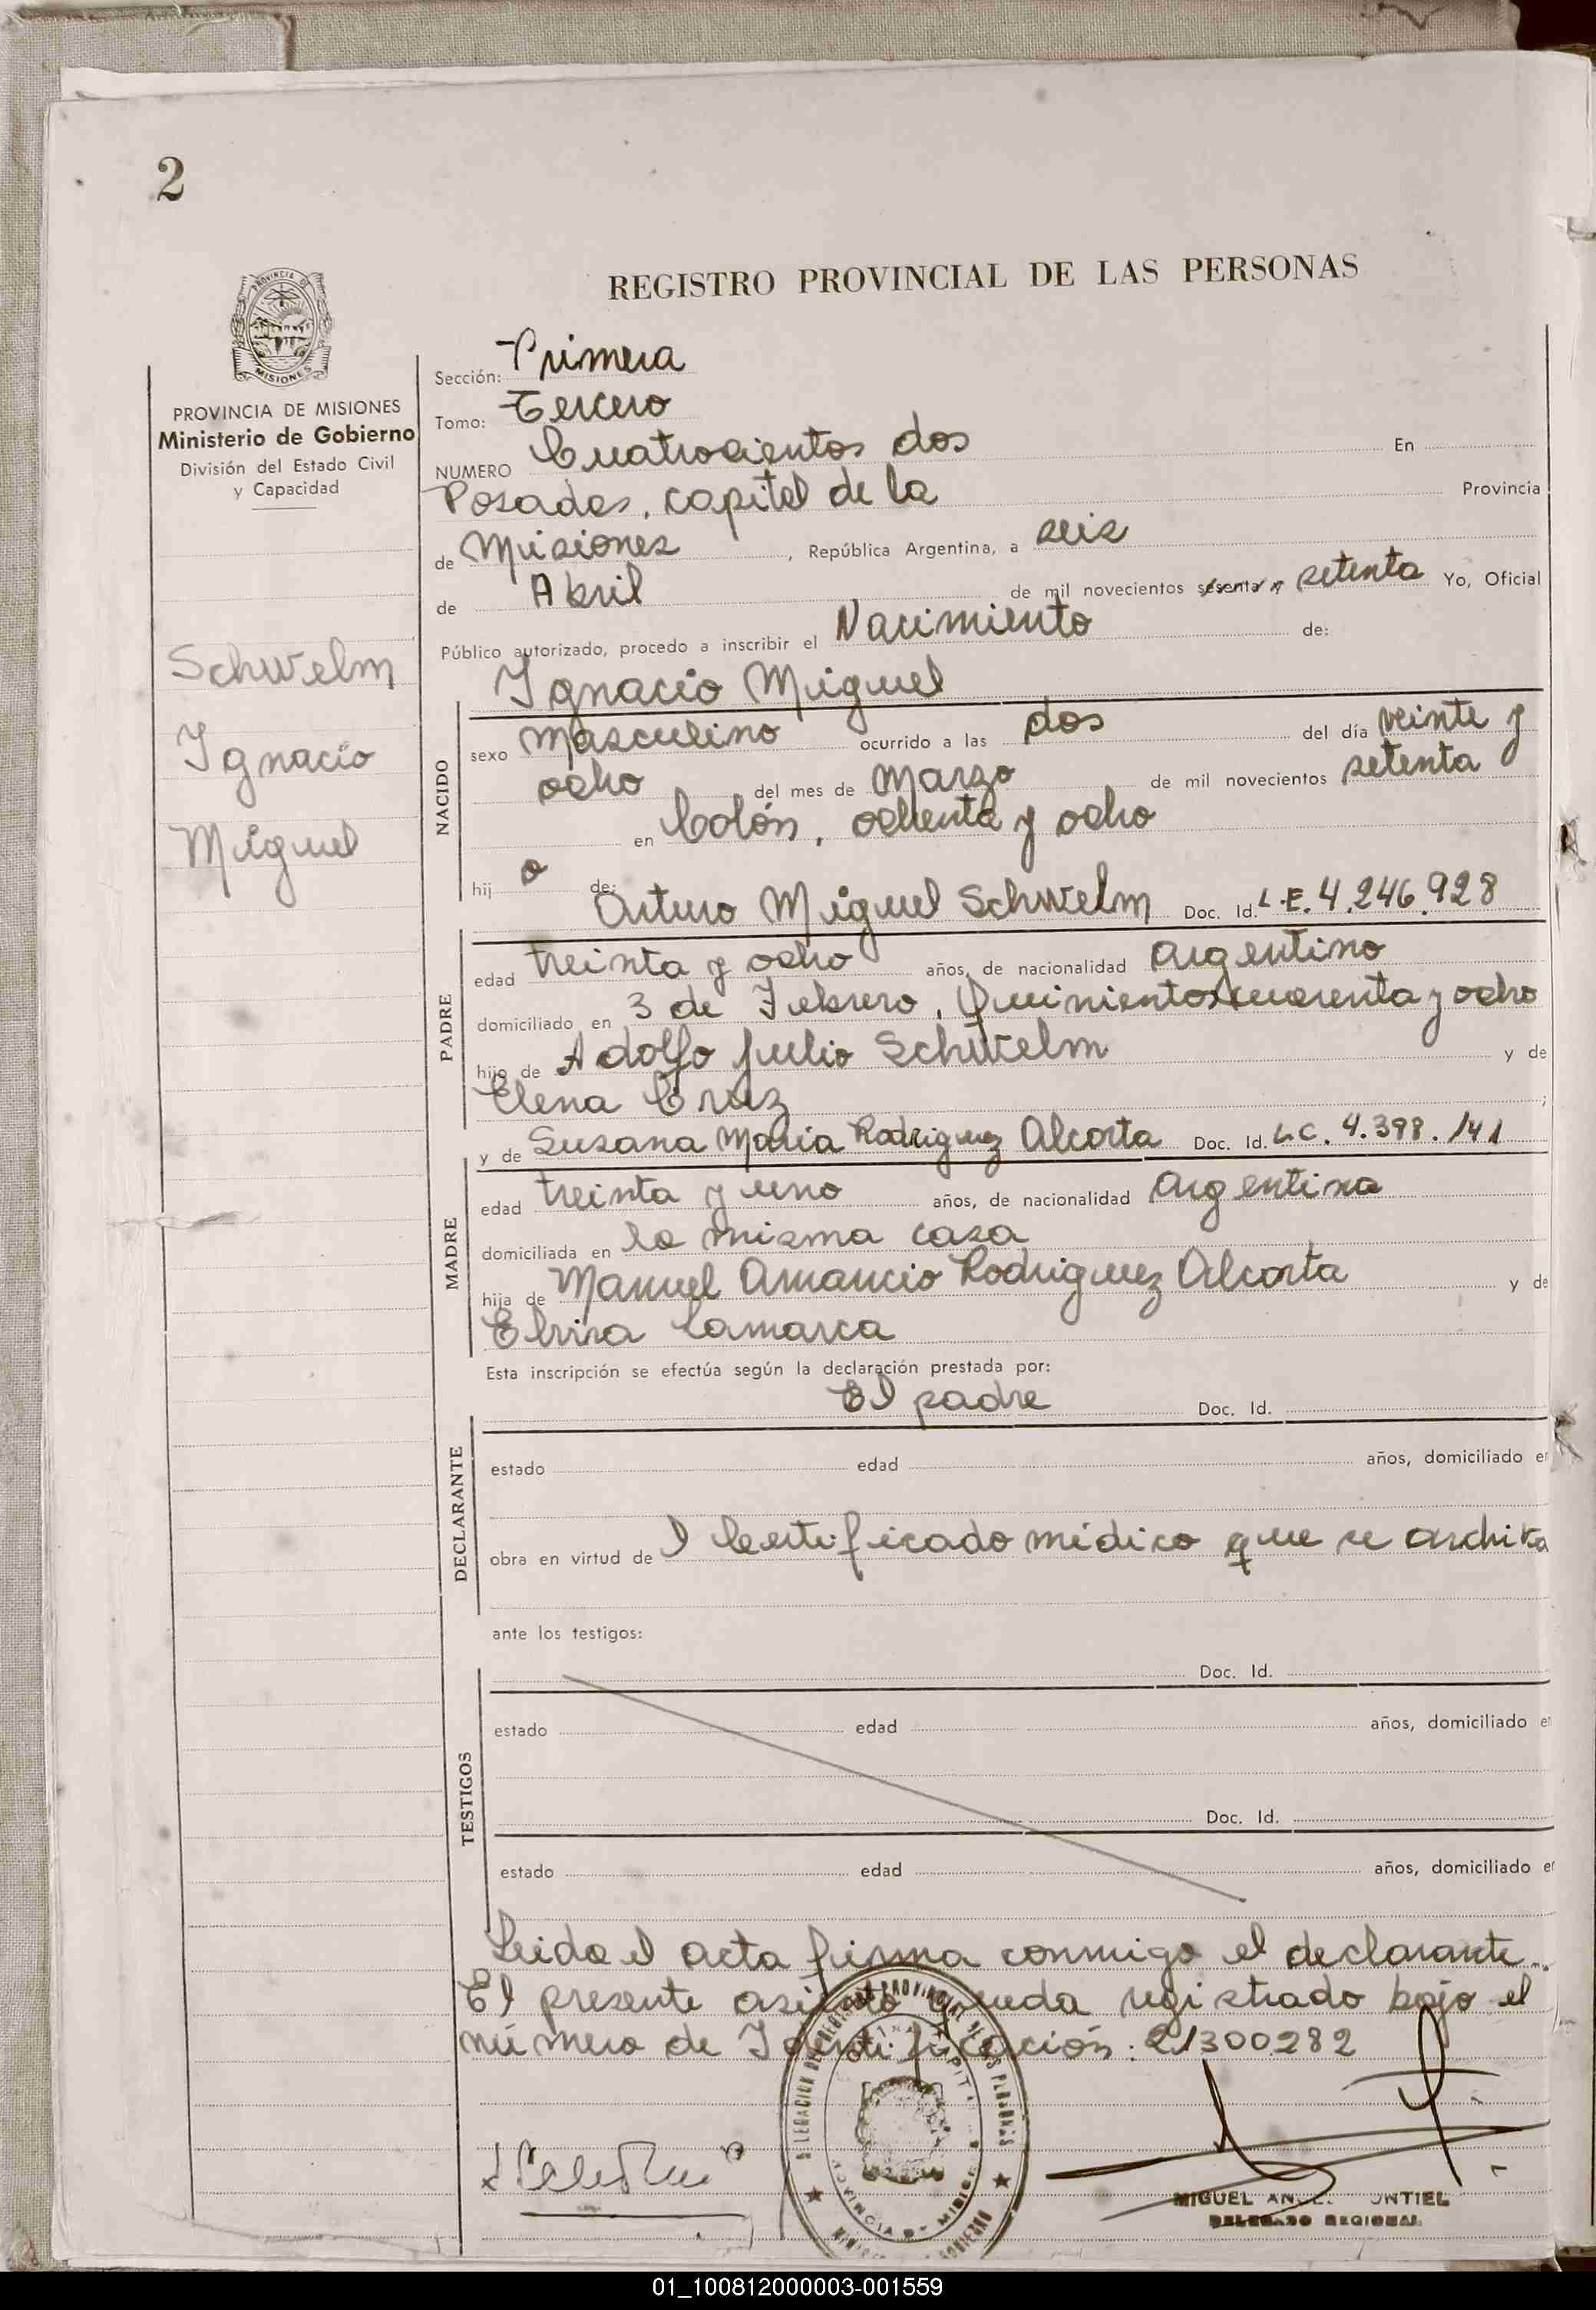 2
REGISTRO PROVINCIAL DE LAS PERSONAS
PROVINCIA DE MISIONES
Ministerio de Gobierno
División del Estado Civil
y Capacidad
Schwelm
Ignacio
Miguel
Sección: Primera
Tomo: Tercero
NUMERO Cuatrocientos dos En
Posadas, capital de la Provincia
de Misiones, República Argentina, a seis
de Abril de mil novecientos sesenta y setenta Yo, Oficial
Público autorizado, procedo a inscribir el Nacimiento de:
Ignacio Miguel
NACIDO
sexo Masculino ocurrido a las dos del día veinte y
ocho del mes de Marzo de mil novecientos setenta
en Colón, ochenta y ocho
hij o de:
Arturo Miguel Schwelm Doc. Id. L.E. 4.246.928
PADRE
edad treinta y ocho años, de nacionalidad Argentino
domiciliado en 3 de Febrero, Quinientos cuarenta y ocho
hijo de Adolfo Julio Schwelm y de
Elena Cruz ;
y de Susana María Rodriguez Alcorta Doc. Id. L.C. 4.398.141
MADRE
edad treinta y uno años, de nacionalidad Argentina
domiciliada en la misma casa
hija de Manuel Amancio Rodriguez Alcorta y de
Elvira Lamarca
Esta inscripción se efectúa según la declaración prestada por:
El padre Doc. Id.
DECLARANTE
estado edad años, domiciliado en
obra en virtud de l Certificado médico que se archiva
ante los testigos:
Doc. Id.
TESTIGOS
estado edad años, domiciliado en
Doc. Id.
estado edad años, domiciliado en
Leida el acta firma conmigo el declarante.
El presente asiento queda registrado bajo el
número de Identificación: 21300282
MIGUEL
DELEGADO REGIONAL
01_100812000003-001559